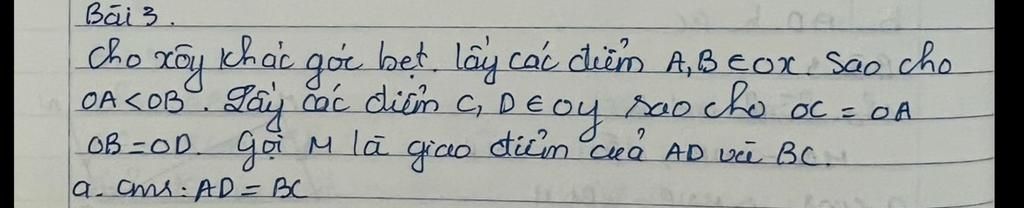 Bài 3.
Cho xôy khác góc bẹt. lấy các điểm A, B ∈ Ox. Sao cho
OA < OB. Lấy các điểm C, D ∈ Oy sao cho OC = OA
OB = OD. Gọi M là giao điểm của AD và BC.
a. cmr: AD = BC